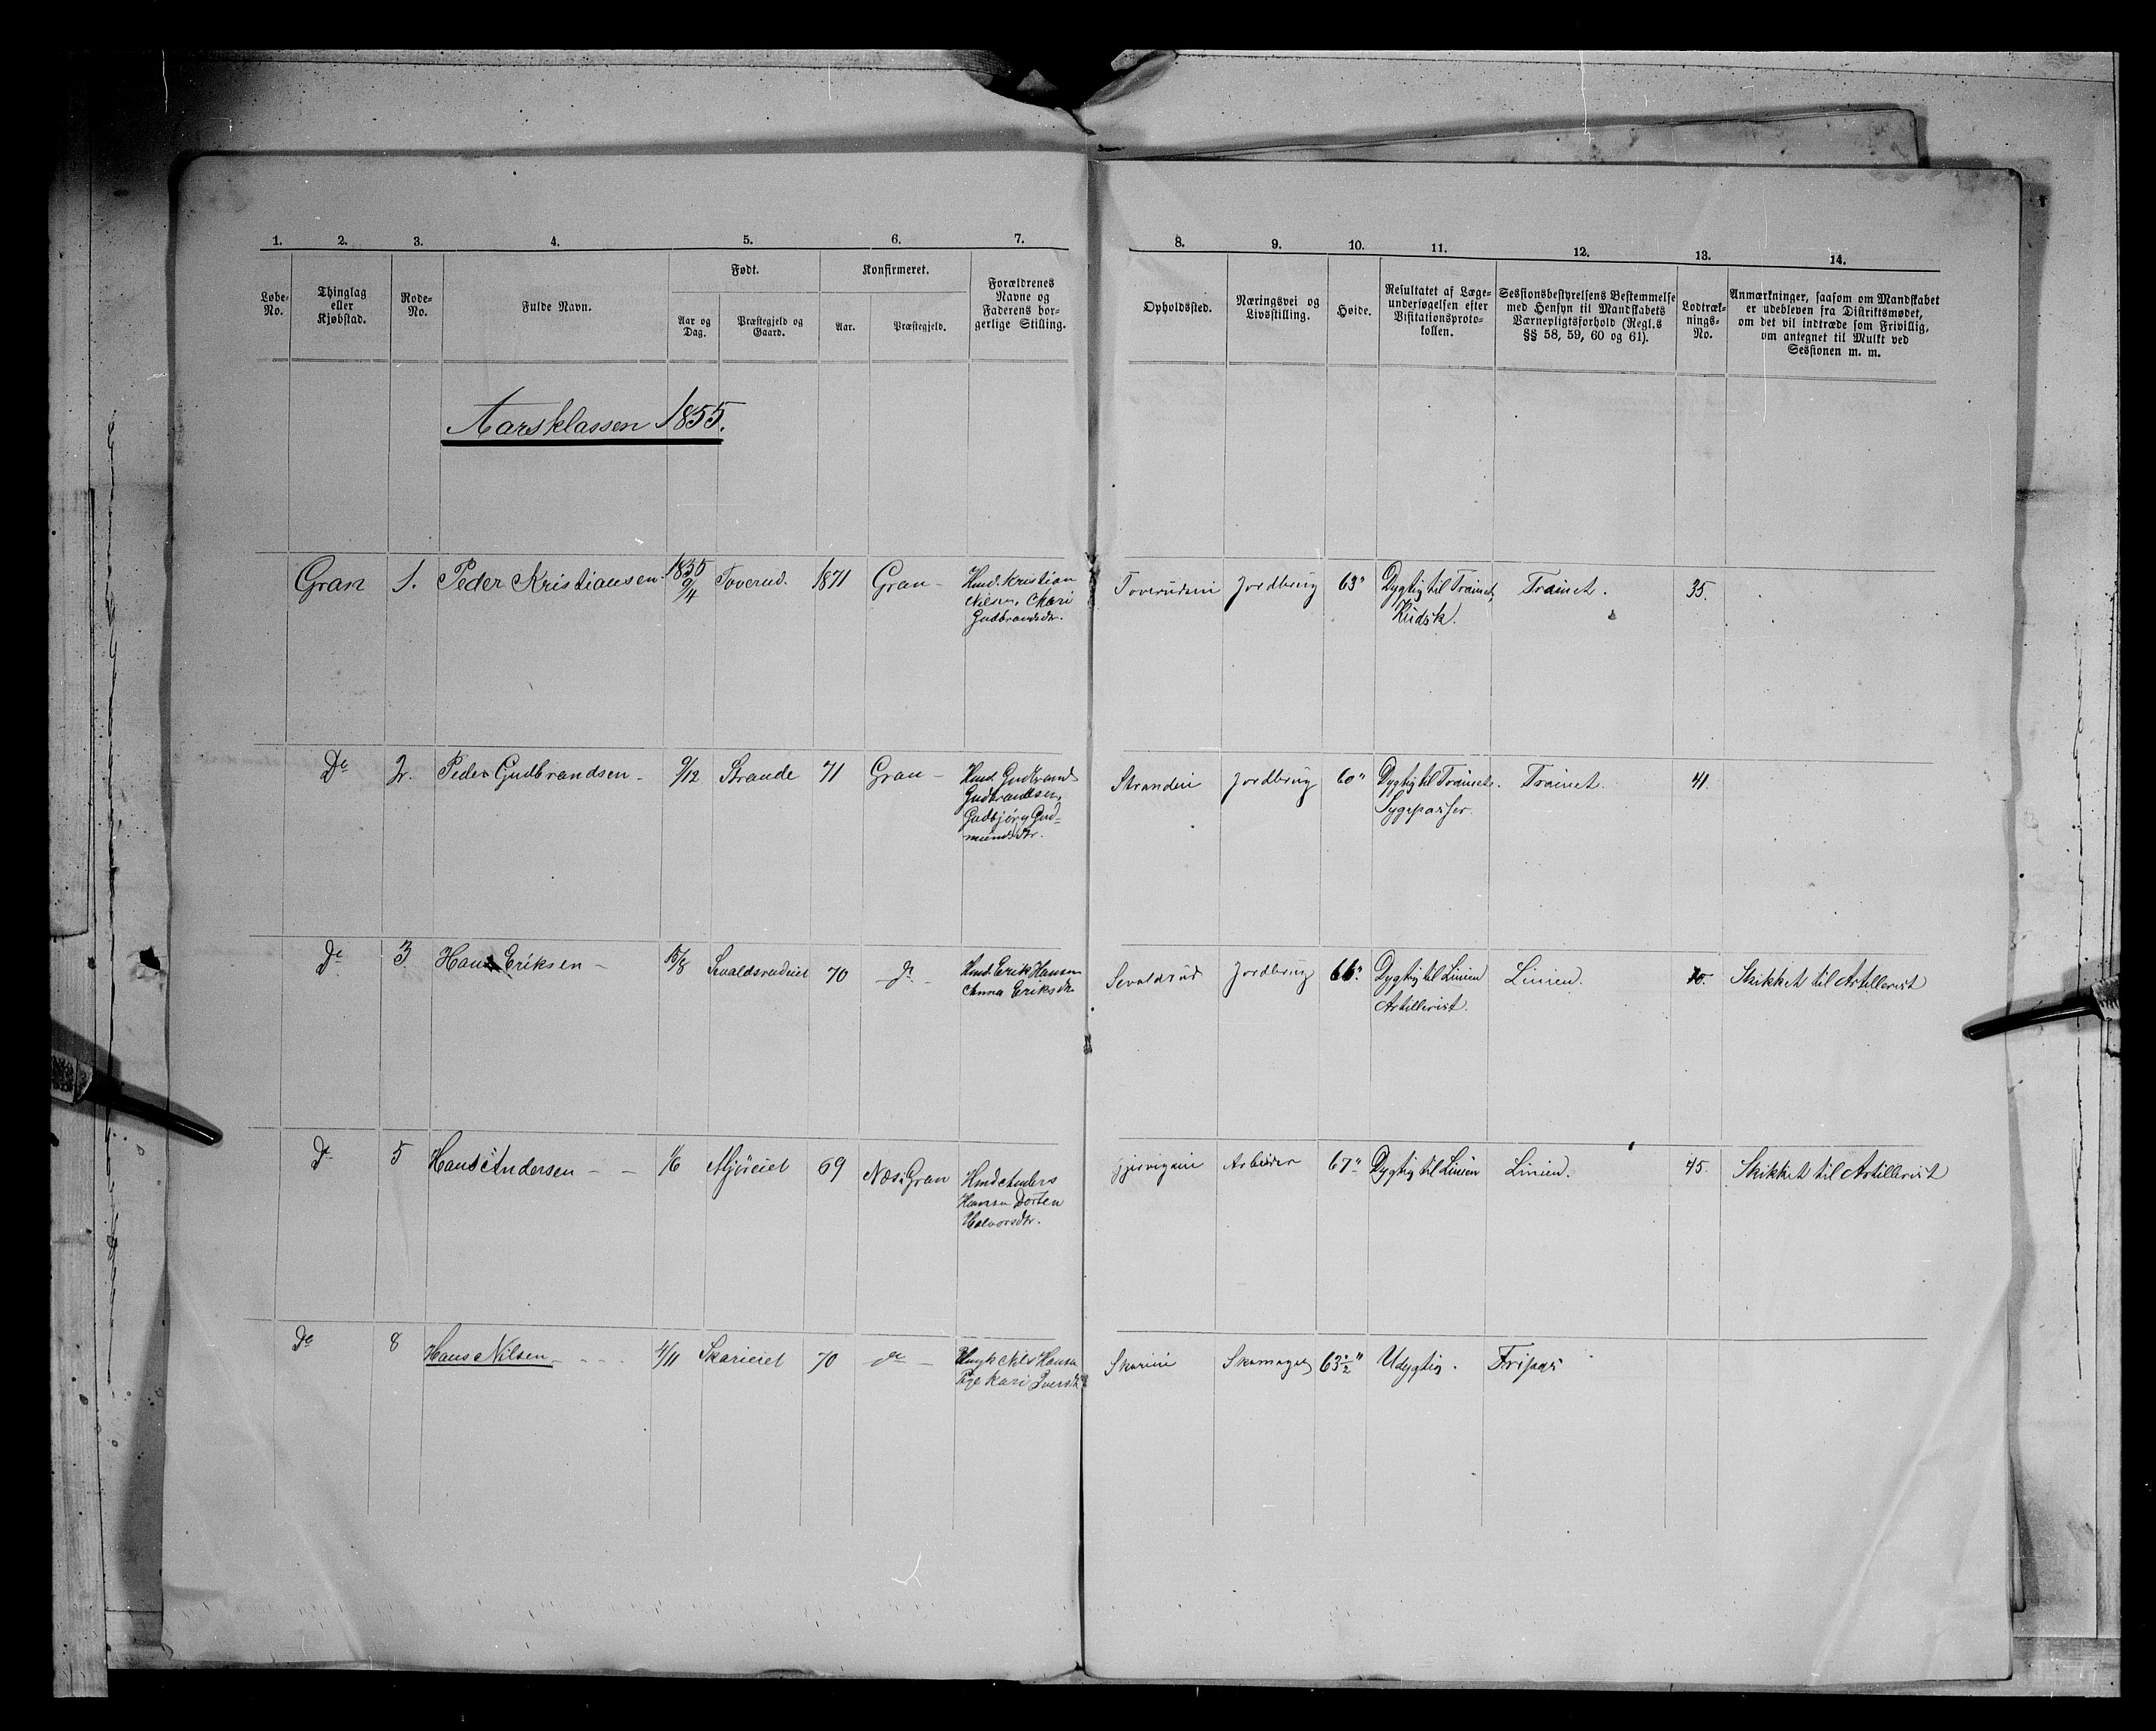 1. 2. 3. 4. 5. 6. 7. 8. 9. 10. 11. 12. 13. 14.
Løbe-
No.
Thinglag
eller
Kjøbstad.
Rode-
No.
Fulde Navn.
Født.
Aar og
Dag.
Præstegjeld og
Gaard.
Konfirmeret.
Aar.
Præstegjeld.
Forældrenes
Navne og
Faderens bor-
gerlige Stilling.
Opholdssted.
Næringsvei og
Livsstilling.
Høide.
Resultatet af Læge-
undersøgelsen efter
Visitationsproto-
kollen.
Sessionsbestyrelsens Bestemmelse
med Hensyn til Mandskabets
Værnepligtsforhold (Regl.s
§§ 58, 59, 60 og 61).
Lodtræk-
nings-
No.
Anmærkninger, saasom om Mandskabet
er udebleven fra Distriktsmødet,
om det vil indtræde som Frivillig,
om antegnet til Mulkt ved
Sessionen m. m.
Aarsklassen 1855.
Gran 1. Peder Kristiansen 1855 9/4 Toverud. 1871 Gran-
Hmd. Kristian
Nilsen, Mari
Gudbrandsdtr.
Toverudeie Jordbrug 63" Dygtig til Trainet,
Kudsk.
Trainet. 35.
De 2. Peder Gudbrandsen - 9/12 Strande 71 Gran -
Hmd Gudbrand
Gudbrandsen,
Gudbjørg Gud-
mundsdtr.
Strandeie Jordbrug 60" Dygtig til Trainet.
Sygepasser.
Trainet. 41.
De 3 Hans Eriksen - 15/8 Sevaldsrudeiet 70 de -
Hmd. Erik Hansen
Anna Eriksdtr
Sevaldsrud Jordbrug 66". Dygtig til Linien
Artillerist.
Linien. 70. Skikket til Artillerist
De 5 Hans Andersen - - 1/6 Mjøreiet 69 Næs i Gran
Hmd Anders
Hansen Dorten
Halvorsdtr.
Arbeider 67" Dygtig til Linien Linien. 45. Skikket til Artillerist
De 8 Hans Nilsen - - - 4/11 Skarieiet 70 de -
Nils Hansen
Pige Kari Iversdtr
Skarieie Skomager 63 1/2" Udygtig. Fripas